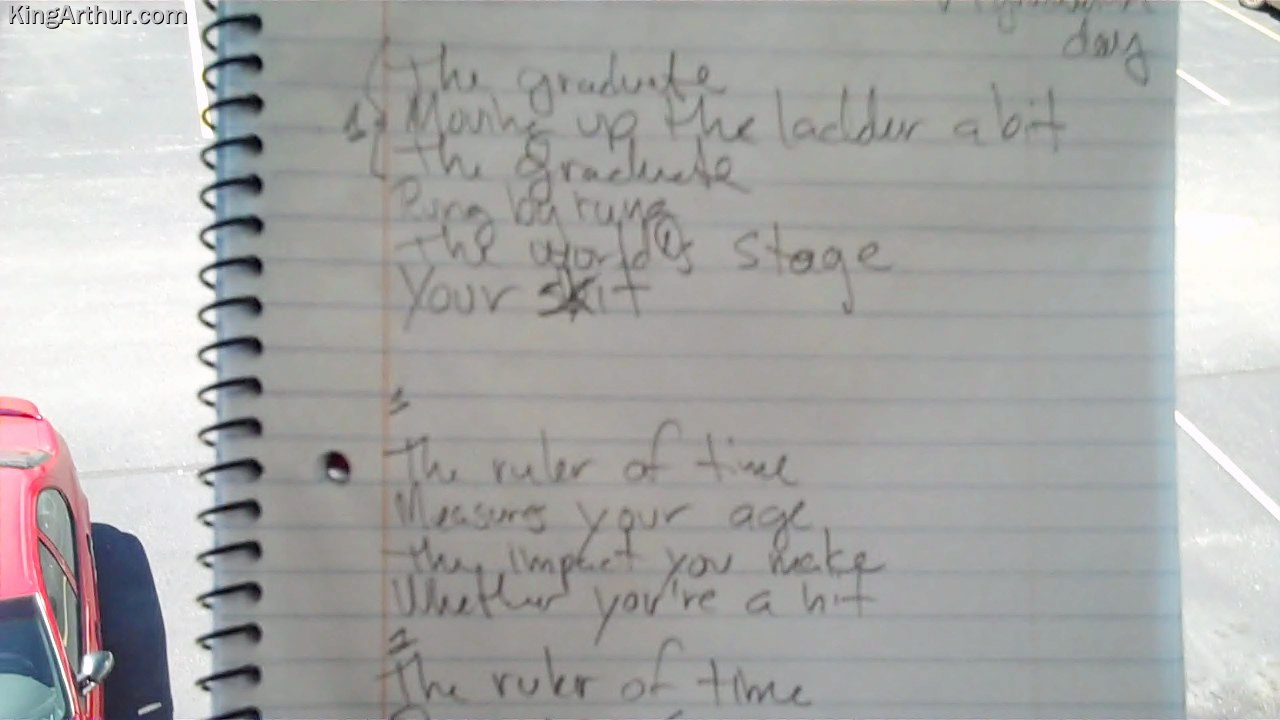 KingArthur.com
day
The graduate
1 Moving up the ladder a bit
The graduate
Rung by rung
The world's stage
Your skit
The ruler of time
Measures your age,
The impact you make
Whether you're a hit
The ruler of time